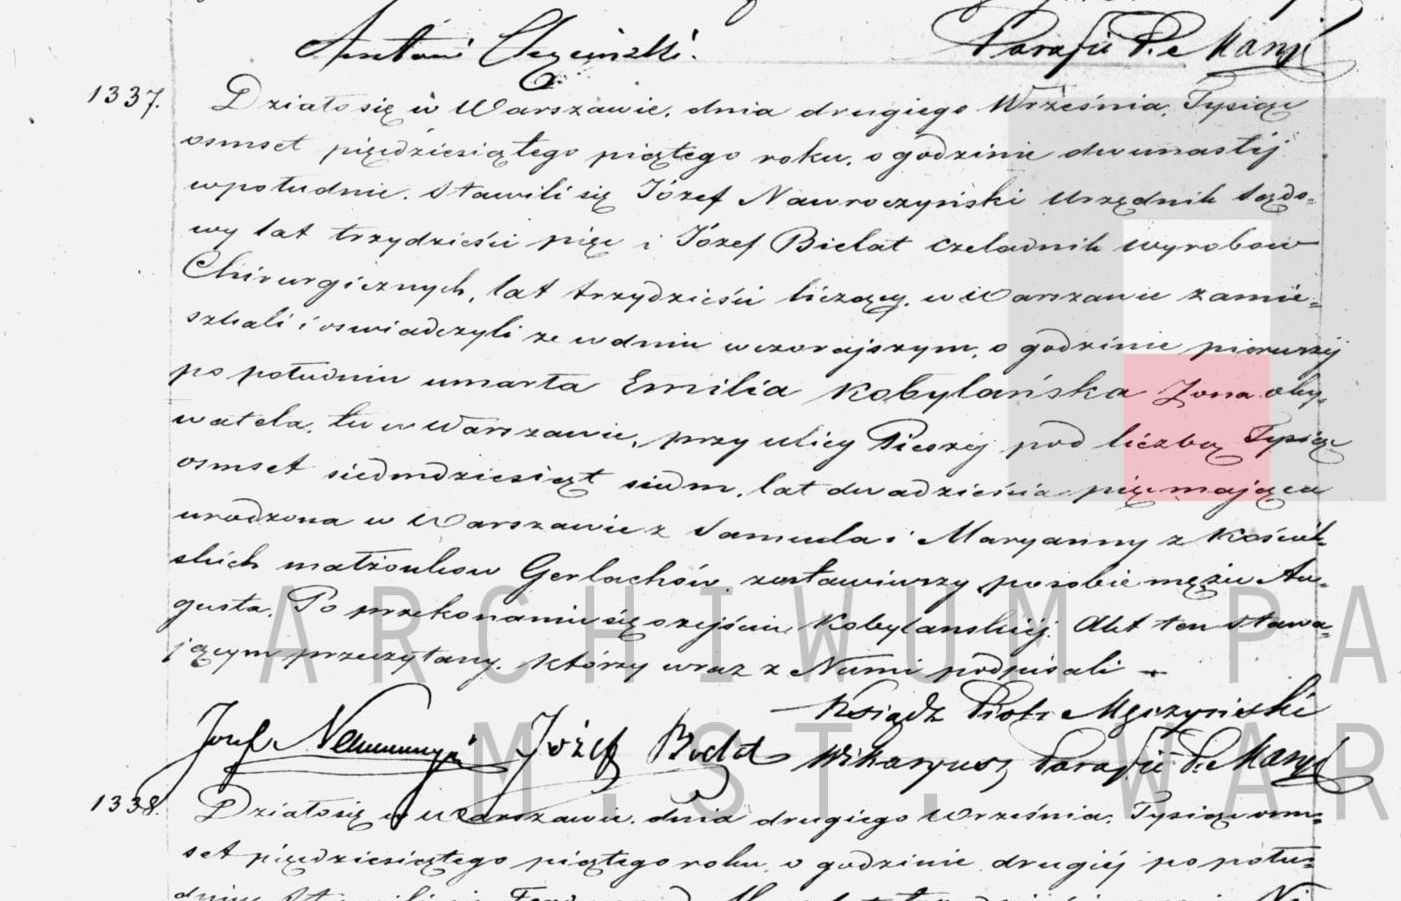 Antoni
Parafii P. M Maryi
1337.
Działo się w Warszawie, dnia drugiego Września, Tysiąc
osmset pięćdziesiątego piątego roku, o godzinie dwunastéj
w południe. Stawili się Józef Nawroczyński Urzędnik Sądo-
wy lat trzydzieści pięc i Józef Bielat czeladnik wyrobow
Chirurgicznych, lat trzydzieści liczący, w Warszawie zamie-
szkali i oswiadczyli ze w dniu wczorajszym, o godzinie pierwszéj
po południu umarła Emilia Kobylańska Zona oby-
watela, tu w Warszawie, przy ulicy Pieszéj pod liczbą Tysiąc
osmset siedmdziesiąt siedm, lat dwadzieścia pięc mająca
urodzona w Warszawie z Samuela i Maryanny z
skich małżonkow Gerlachów, zostawiwszy po sobie męża Au-
gusta. Po przekonaniu się o zejściu Kobylanskiéj. Akt ten stawa-
jącym przeczytany, którzy wraz z Nami podpisali
Ksiądz Piotr
Józef Józef Wikaryusz Parafii P. Maryi
1338.
Działo się w Warszawie, dnia drugiego Września, Tysiąc osm-
set pięćdziesiątego piątego roku, o godzinie drugiéj po połu-
dniu
ARCHIWUM PA
M. ST. WAR